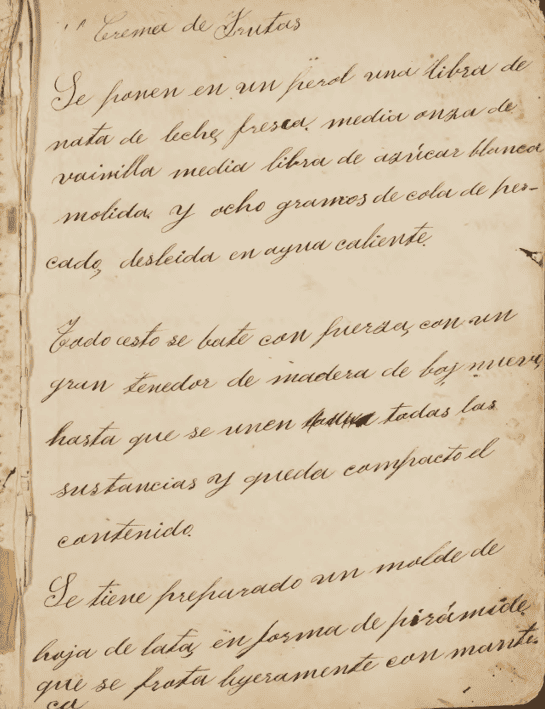 " Crema de Frutas
Se ponen en un perol una libra de
nata de leche, fresca. media onza de
vainilla media libra de azúcar blanca
molida. y ocho gramos de cola de pes-
cado, desleida en agua caliente.
Todo esto se bate con fuerza, con un
gran tenedor de madera de boj nuevo,
hasta que se unen todas las
sustancias y queda compacto el
contenido.
Se tiene preparado un molde de
hoja de lata, en forma de pirámide,
que se frota ligeramente con mante-
ca